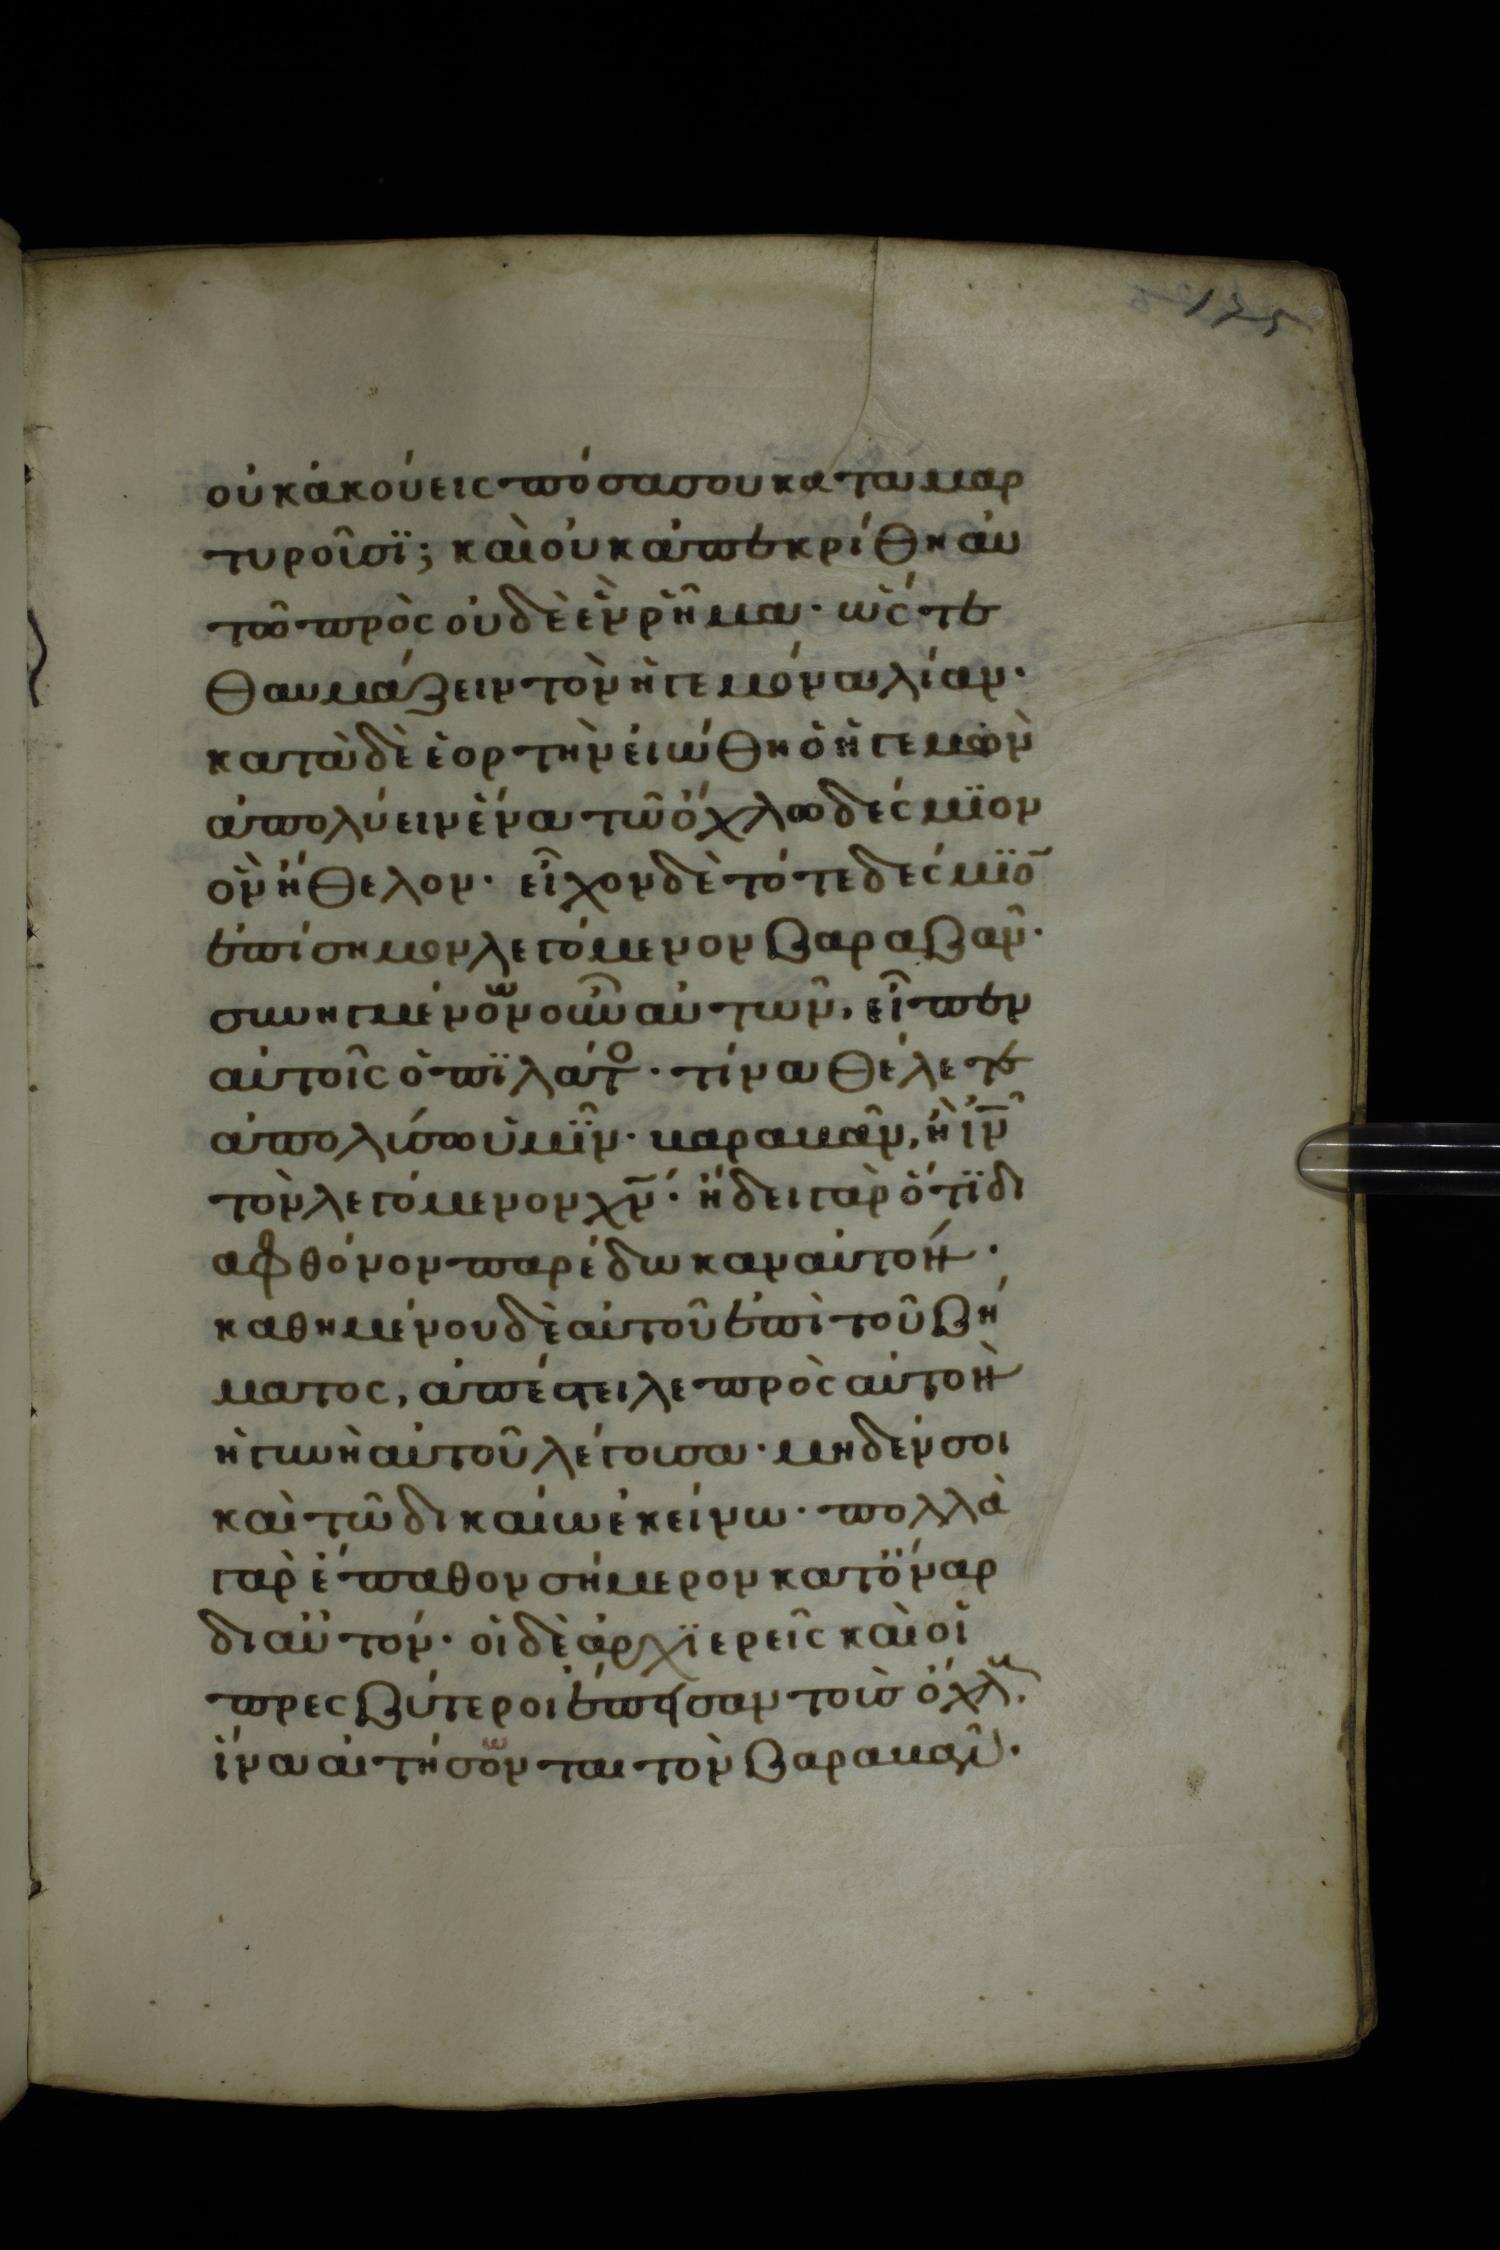 175
οὐκ ἀκούεις πόσα σου καταμαρ
τυροῦσϊ; καὶ οὐκ ἀπεκρίθη αὐ
τῶ πρὸς οὐδὲ ἓν ῥῆμα· ὥστε
θαυμάζειν τὸν ἡγεμόνα λίαν·
κατὰ δὲ ἑορτὴν εἰώθη ὁ ἡγεμὸν
ἀπολύειν ἕνα τῶ ὄχλω δέσμϊον
ὃν ἤθελον· εἶχον δὲ τότε δέσμϊο̄
ἐπίσημον λεγόμενον βαραβᾶν·
συνηγμένων οὖν αὐτῶν, εἶπεν
αὐτοῖς ὁ πϊλάτο· τίνα θέλετε
ἀπολύσω ὑμῖν· βαραβᾶν, ἢ ἰν̄
τὸν λεγόμενον χν̄· ἤδει γὰρ ὅτϊ δι
α φθόνον παρέδωκαν αὐτόν·
καθημένου δὲ αὐτοῦ ἐπὶ τοῦ βή
ματος, ἀπέστειλε πρὸς αὐτὸν
ἡ γυνὴ αὐτοῦ λέγουσα· μηδέν σοι
καὶ τῶ δικαίω ἐκείνω· πολλὰ
γὰρ ἔπαθον σήμερον κατ ὄναρ
δι αὐτόν· οἱ δὲ ἀρχϊερεῖς καὶ οἱ
πρεσβύτεροι ἔπεισαν τοὺσ ὄχλους.
ἵνα αἰτήσωνται τὸν βαραβᾶν·